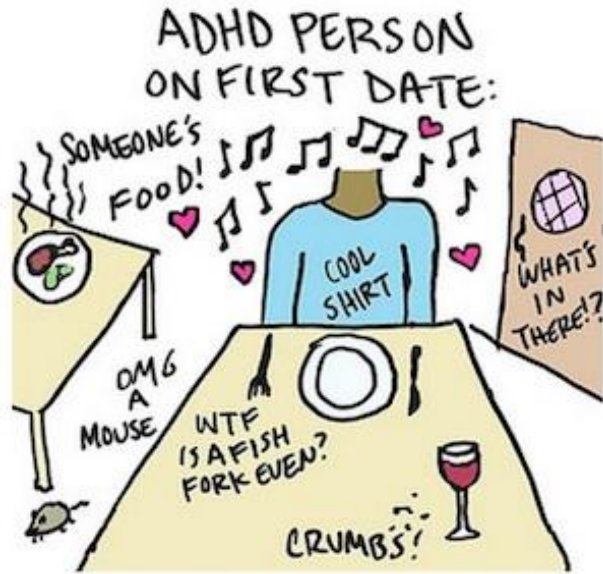 ADHD PERSON
ON FIRST DATE:
SOMEONE'S
FOOD!
COOL
SHIRT
WHAT'S
IN
THERE!?
OMG
A
MOUSE
WTF
IS A FISH
FORK EVEN?
CRUMBS!